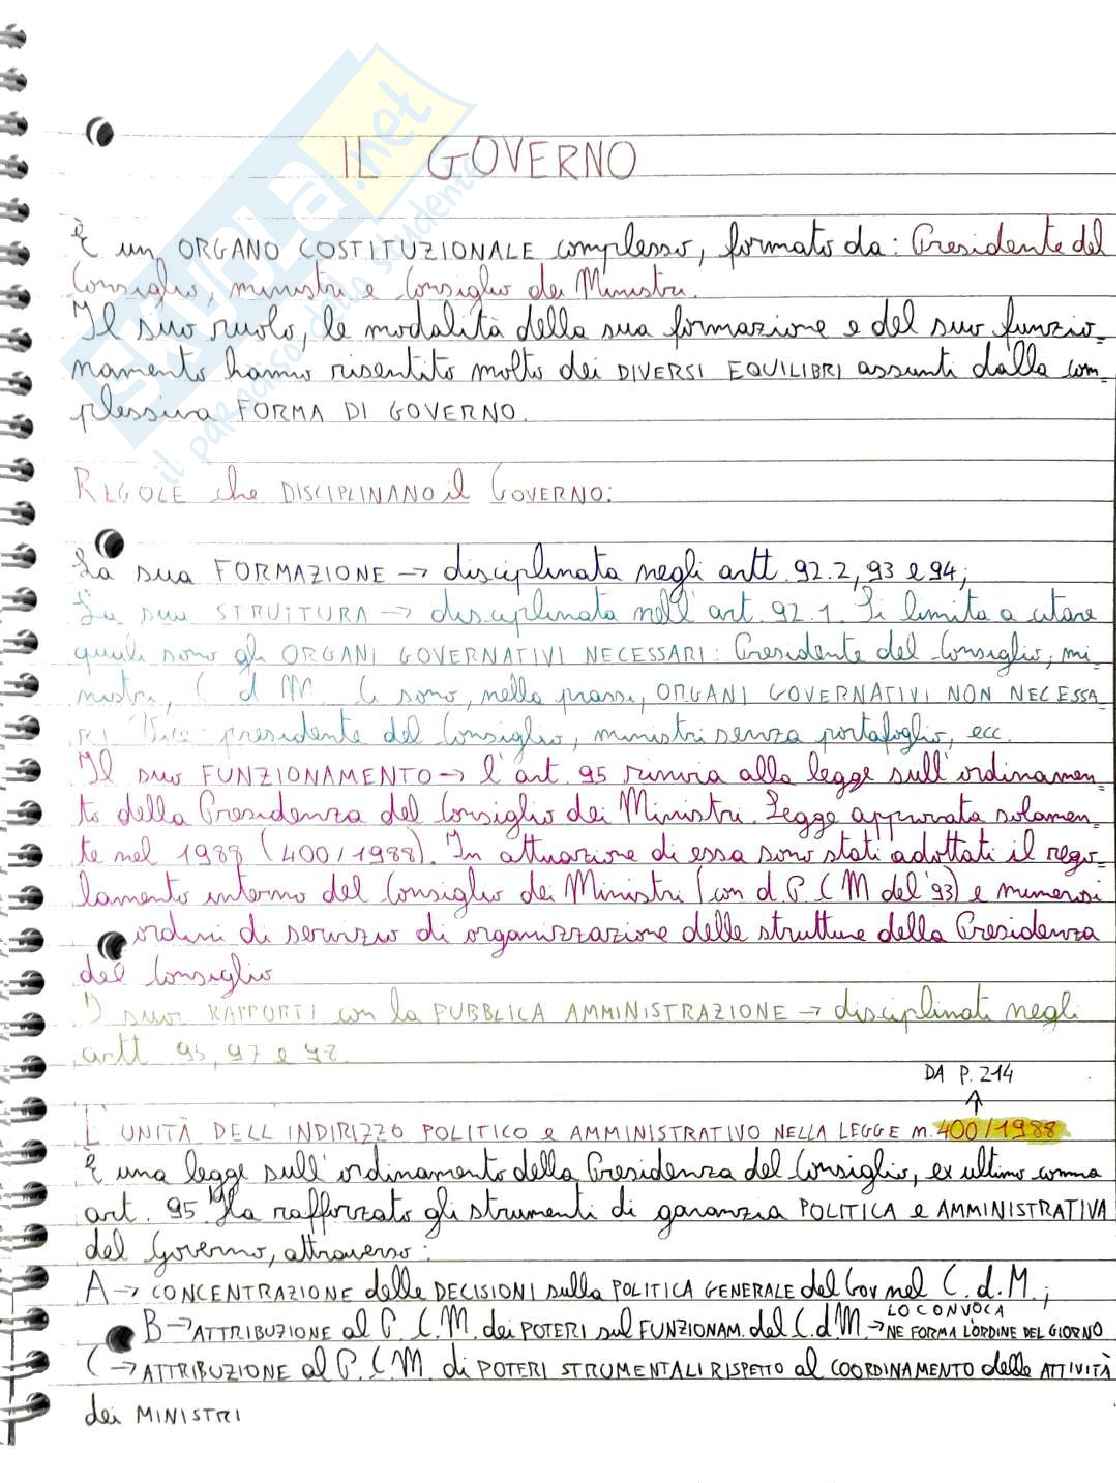 IL GOVERNO
È un ORGANO COSTITUZIONALE complesso, formato da: Presidente del
Consiglio, ministri e Consiglio dei Ministri.
Il suo ruolo, le modalità della sua formazione e del suo funzio=
namento hanno risentito molto dei DIVERSI EQUILIBRI assunti dalla com=
plessiva FORMA DI GOVERNO.
REGOLE che DISCIPLINANO il GOVERNO:
La sua FORMAZIONE → disciplinata negli artt. 92.2, 93 e 94;
La sua STRUTTURA → disciplinata nell'art. 92.1. Si limita a citare
quali sono gli ORGANI GOVERNATIVI NECESSARI: Presidente del Consiglio, mi=
nistri, C d M. Ci sono, nella prassi, ORGANI GOVERNATIVI NON NECESSA=
RI Vice-presidente del Consiglio, ministri senza portafoglio, ecc.
Il suo FUNZIONAMENTO → l'art. 95 rinvia alla legge sull'ordinamen=
to della Presidenza del Consiglio dei Ministri. Legge approvata solamen=
te nel 1988 (400/1988). In attuazione di essa sono stati adottati il rego=
lamento interno del Consiglio dei Ministri (con d.P.C.M del '93) e numerosi
ordini di servizio di organizzazione delle strutture della Presidenza
del Consiglio
I suoi RAPPORTI con la PUBBLICA AMMINISTRAZIONE → disciplinati negli
artt. 95, 97 e 98.
DA P. 214
↑
L'UNITÀ DELL'INDIRIZZO POLITICO e AMMINISTRATIVO NELLA LEGGE n. 400/1988
È una legge sull'ordinamento della Presidenza del Consiglio, ex ultimo comma
art. 95. Ha rafforzato gli strumenti di garanzia POLITICA e AMMINISTRATIVA
del Governo, attraverso:
A → CONCENTRAZIONE delle DECISIONI sulla POLITICA GENERALE del Gov nel C.d.M.;
B → ATTRIBUZIONE al P.C.M. dei POTERI sul FUNZIONAM. del C.d.M. → LO CONVOCA
NE FORMA L'ORDINE DEL GIORNO
C → ATTRIBUZIONE al P.C.M. di POTERI STRUMENTALI RISPETTO al COORDINAMENTO delle ATTIVITÀ
dei MINISTRI
SKUOLA.net
il paradiso dello studente